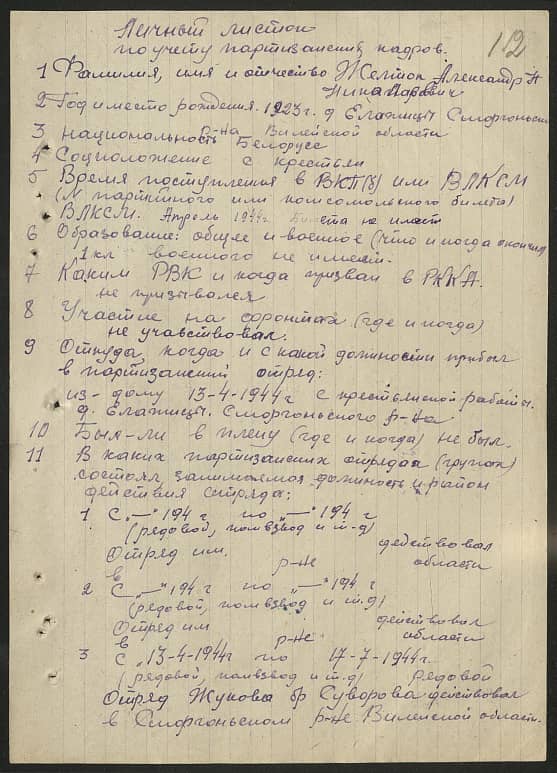 Личный листок
по учету партизанских кадров.
112
1 Фамилия, имя и отчество Желток Александр
Никанорович
2 Год и место рождения. 1923 г. д Елажицы Сморгоньского
р-на Вилейской области
3 национальность Белорусс
4 Соцположение с крестьян
5 Время поступления в ВКП(б) или ВЛКСМ
(N партийного или комсомольского билета)
ВЛКСМ. Апрель 1944г Билета не имеет
6 Образование: общее и военное (что и когда окончил)
1 кл военного не имеет.
7 Каким РВК и когда призван в РККА.
не призывался
8 Участие на фронтах (где и когда)
не учавствовал.
9 Откуда, когда и с какой должности прибыл
в партизанский отряд:
из дому 13-4-1944г с крестьянской работы.
д. Елажицы. Сморгоньского р-на
10 Был-ли в плену (где и когда) не был.
11 В каких партизанских отрядах (групах)
состоял, занимаемая должность и район
действия отряда:
1 С „—" 194 г по „—" 194 г
(рядовой, помвзвод и т-д)
Отряд им. действовал
в р-не области
2 С „—" 194 г по „—" 194 г
(рядовой, помвзвод и т.д)
Отряд им действовал
в р-не области
3 С „13-4-1944г по 17-7-1944г.
(рядовой, помвзвод и т-д) рядовой
Отряд Жукова бр Суворова действовал
в Сморгоньском р-не Вилейской област.